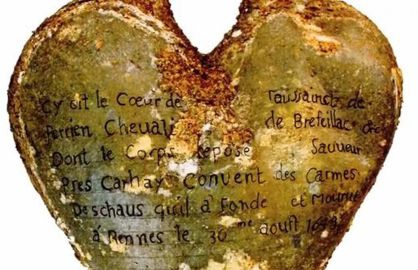 Cy Git le Coeur de Toussainctz de
Perrien Cheuali de Brefeillac
Dont le Corps Repose Sauueur
Pres Carhay Convent des Carmes
Deschaus quil à Fonde et Mourut
à Rennes le 30me aoust